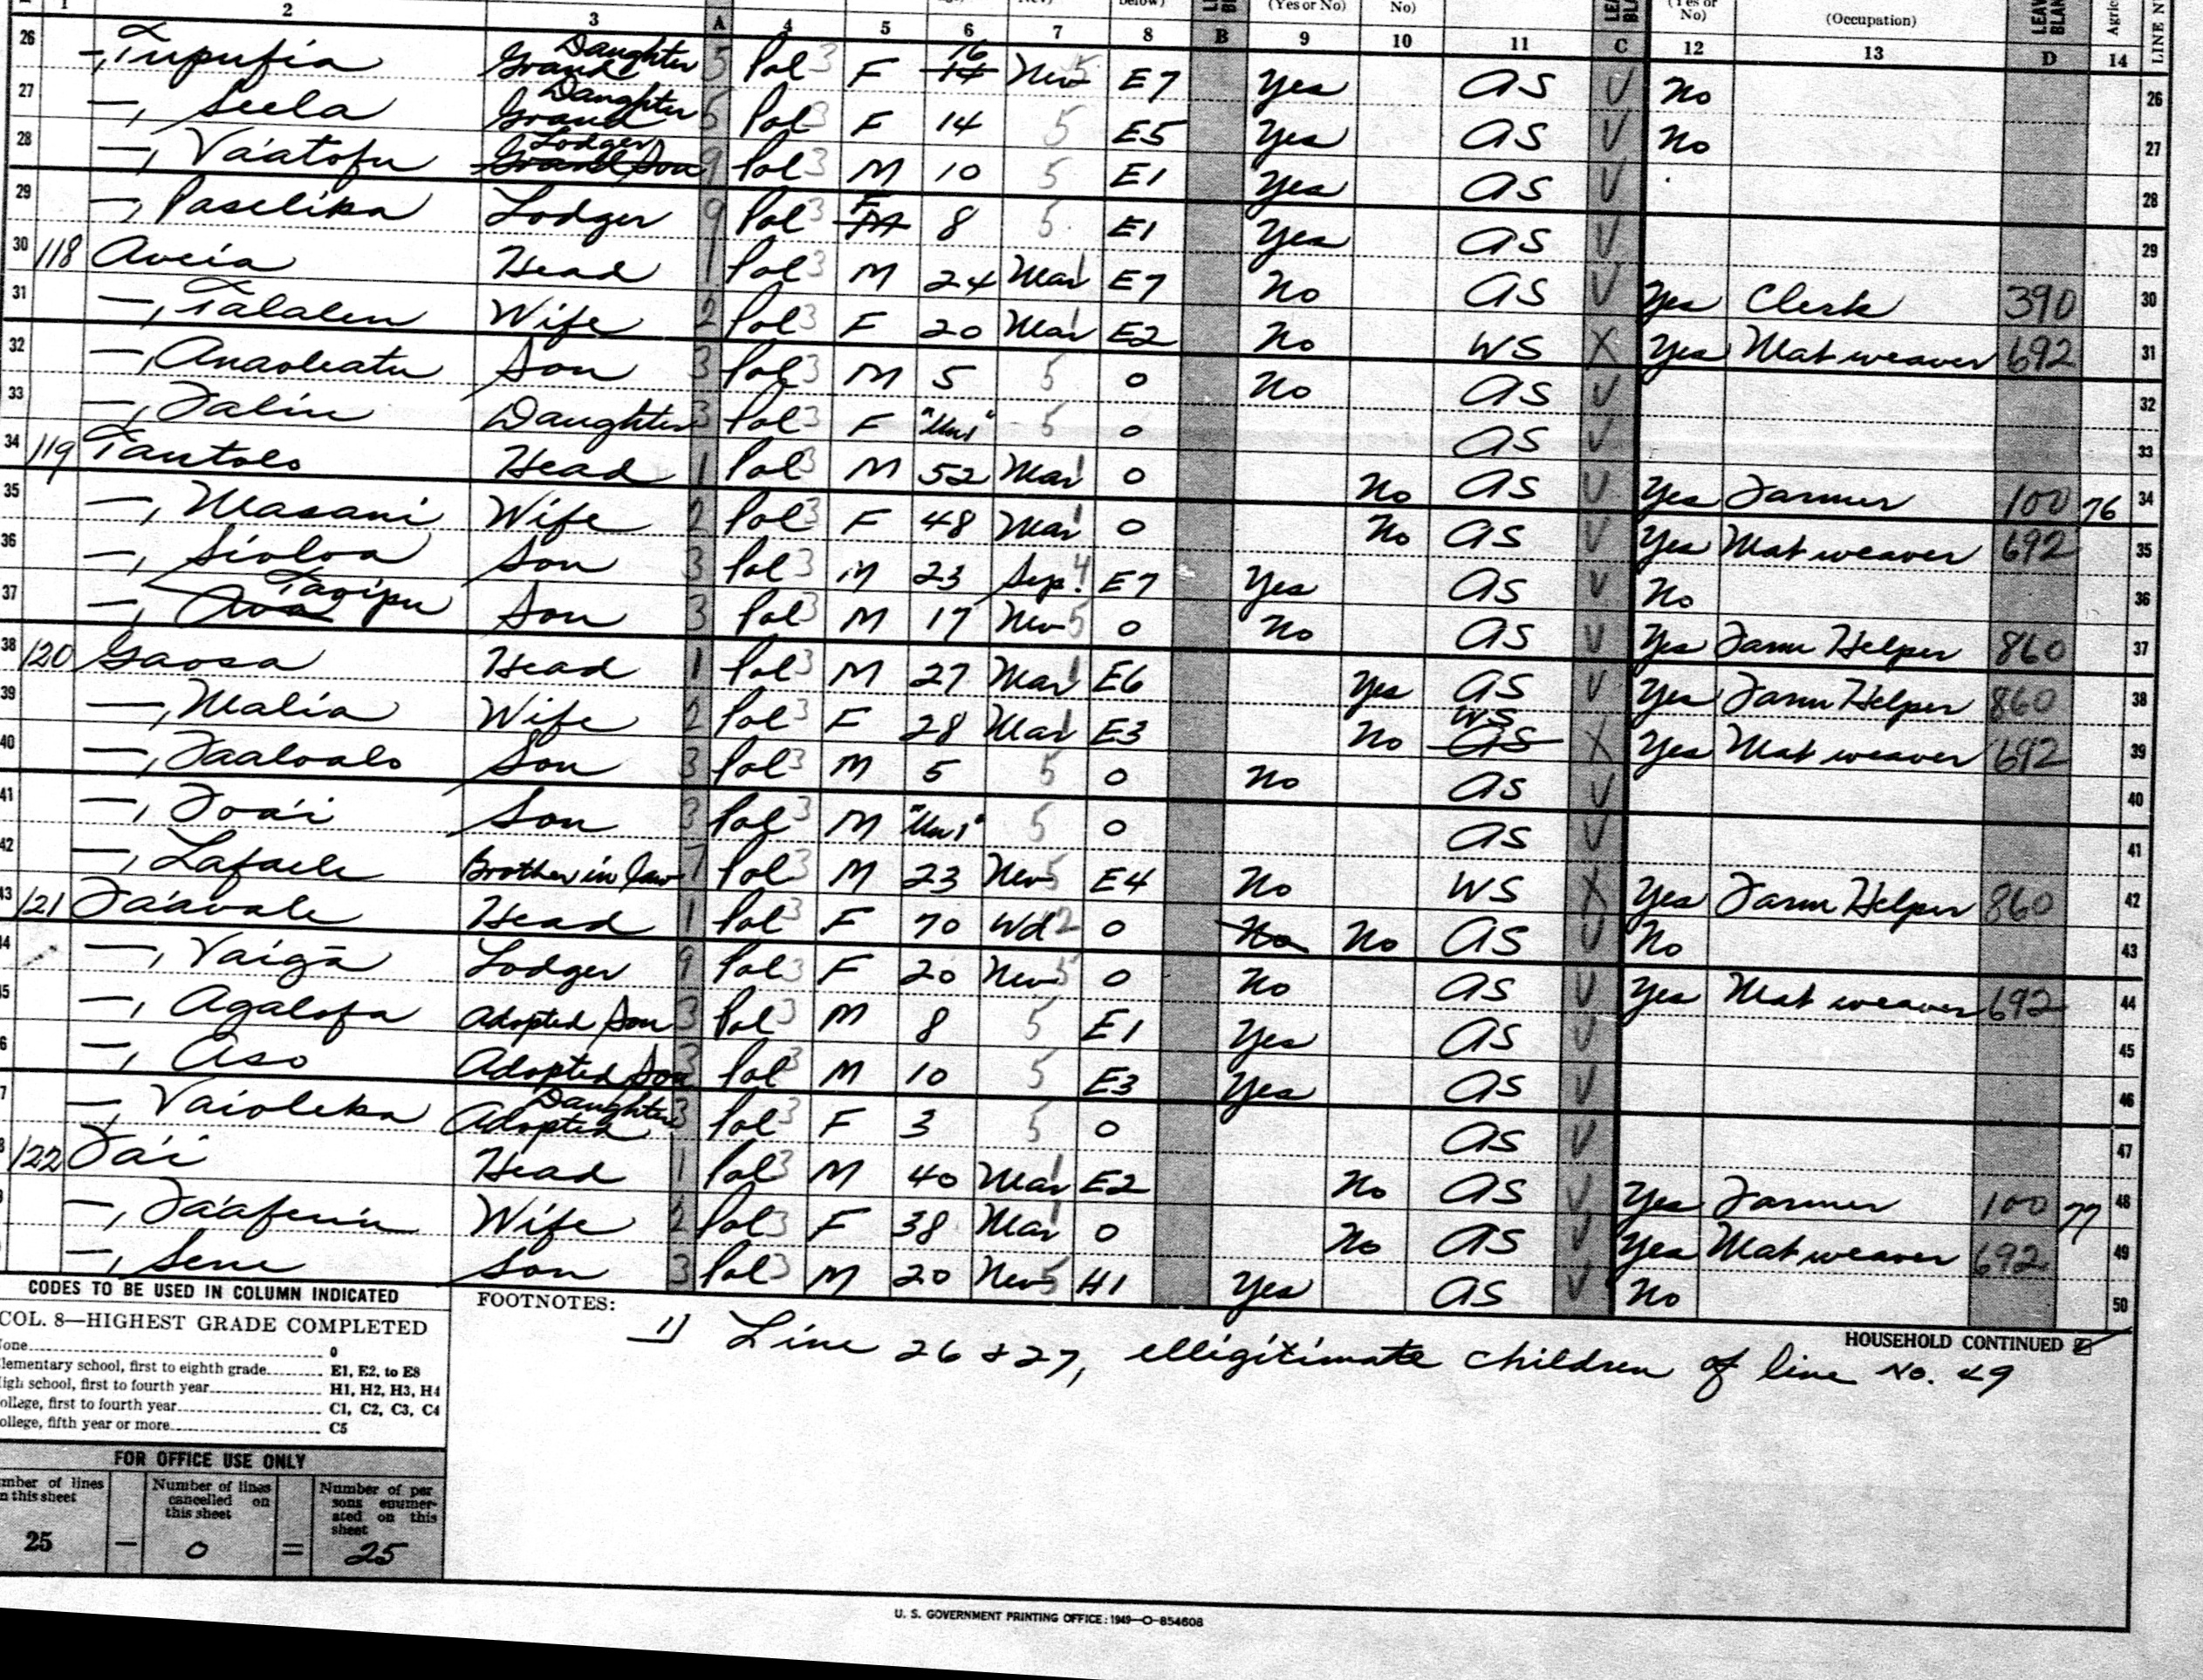 1 2 3 A 4 5 6 7 8 B 9 10 11 C 12 13 D 14
(Yes or No) No) (Yes or No) (Occupation) LEAVE BLANK Agric LINE
26 —, Tupufia Grand Daughter 5 Pol 3 F 14 16 Nev 5 E7 Yes AS V No 26
27 —, Seela Grand Daughter 5 Pol 3 F 14 5 E5 Yes AS V No 27
28 —, Va'atofu Grand Son Lodger 9 Pol 3 M 10 5 E1 Yes AS V 28
29 —, Paselika Lodger 9 Pol 3 M F 8 5 E1 Yes AS V 29
30 118 Aveia Head 1 Pol 3 M 24 Mar 1 E7 No AS V Yes Clerk 390 30
31 —, Talalen Wife 2 Pol 3 F 20 Mar 1 E2 No WS X Yes Mat weaver 692 31
32 —, Anaoleatu Son 3 Pol 3 M 5 5 0 No AS V 32
33 —, Falin Daughter 3 Pol 3 F "Un1" 5 0 AS V 33
34 119 Tautolo Head 1 Pol 3 M 52 Mar 1 0 No AS V Yes Farmer 100 76 34
35 —, Masani Wife 2 Pol 3 F 48 Mar 1 0 No AS V Yes Mat weaver 692 35
36 —, Sioloa Son 3 Pol 3 M 23 Sep. 4 E7 Yes AS V No 36
37 —, Ava Tavipu Son 3 Pol 3 M 17 Nev 5 0 No AS V Yes Farm Helper 860 37
38 120 Gaosa Head 1 Pol 3 M 27 Mar 1 E6 Yes AS V Yes Farm Helper 860 38
39 —, Malia Wife 2 Pol 3 F 28 Mar 1 E3 No AS WS X Yes Mat weaver 692 39
40 —, Faaloalo Son 3 Pol 3 M 5 5 0 No AS V 40
41 —, Foa'i Son 3 Pol 3 M "Un1" 5 0 AS V 41
42 —, Lafaele Brother in law 7 Pol 3 M 23 Nev 5 E4 No WS X Yes Farm Helper 860 42
43 121 Fa'avale Head 1 Pol 3 F 70 Wd 2 0 No No AS V No 43
44 —, Vaigā Lodger 9 Pol 3 F 20 Nev 5 0 No AS V Yes Mat weaver 692 44
45 —, Agalofa Adopted Son 3 Pol 3 M 8 5 E1 Yes AS V 45
46 —, Aso Adopted Son 3 Pol 3 M 10 5 E3 Yes AS V 46
47 —, Vaioleka Adopted Daughter 3 Pol 3 F 3 5 0 AS V 47
122 Fa'i Head 1 Pol 3 M 40 Mar 1 E2 No AS V Yes Farmer 100 77 48
—, Fa'afeu'u Wife 2 Pol 3 F 38 Mar 1 0 No AS V Yes Mat weaver 692 49
—, Sene Son 3 Pol 3 M 20 Nev 5 H1 Yes AS V No 50
CODES TO BE USED IN COLUMN INDICATED
COL. 8—HIGHEST GRADE COMPLETED
None 0
Elementary school, first to eighth grade E1, E2, to E8
High school, first to fourth year H1, H2, H3, H4
College, first to fourth year C1, C2, C3, C4
College, fifth year or more C5
FOOTNOTES:
1) Line 26 & 27, elligitimate children of line No. 49
HOUSEHOLD CONTINUED
FOR OFFICE USE ONLY
Number of lines on this sheet
25
—
Number of lines cancelled on this sheet
0
=
Number of persons enumerated on this sheet
25
U. S. GOVERNMENT PRINTING OFFICE: 1949—O-854608